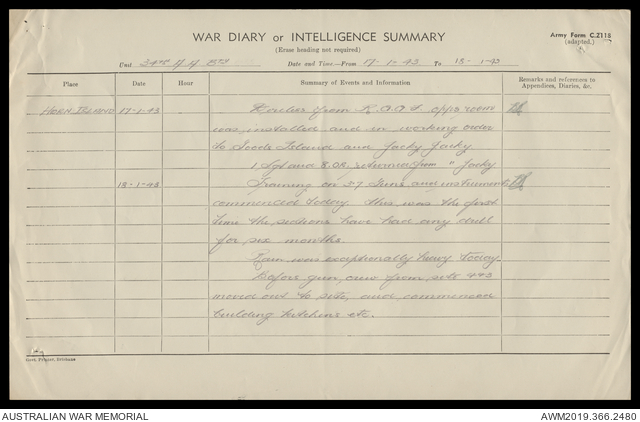 WAR DIARY or INTELLIGENCE SUMMARY
(Erase heading not required)
Army Form C.2118
(adapted.)
Unit 34th A A Bty Date and Time—From 17-1-43 To 18-1-43
Place Date Hour Summary of Events and Information Remarks and references to Appendices, Diaries, &c.
HORN ISLAND 17-1-43 from R.A.A.F. opps room
was installed and in working order
to Goode Island and Jacky Jacky
1 Sgt and 8 OR, returned from " Jacky
18-1-43 Training on 3.7 Guns and instruments
commenced today this was the first
time the sections have had any drill
for six months.
Rain was exceptionally heavy today.
Bofors gun, crew from site 493
moved out to site, and commenced
building kitchens etc.
Govt. Printer, Brisbane
AUSTRALIAN WAR MEMORIAL
AWM2019.366.2480